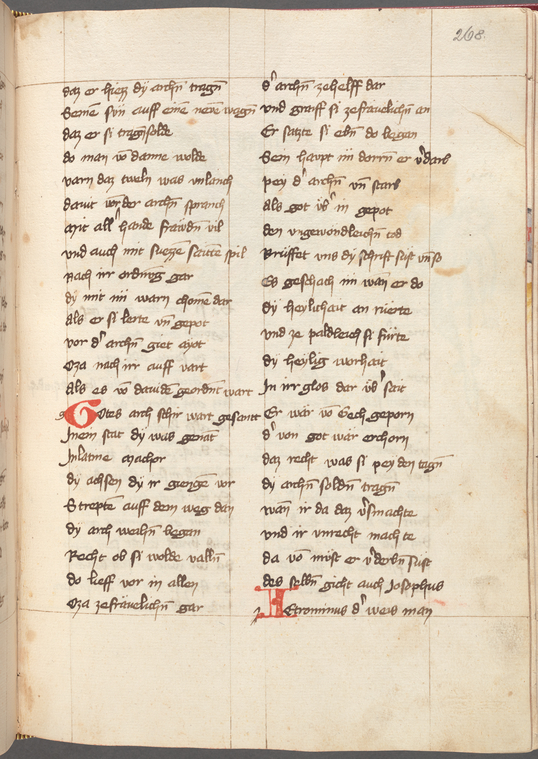 268
daz er hiez dy archn̄ tragn̄
Seinen sün auff eine newe wagn̄
daz er si tragn̄ solde
do man vō danne wolde
varn daz tweln was vnlanch
dauit vor der archn̄ spranch
mit all' hande frawdn̄ vil
vnd auch mit suezze saiten spil
Nach irr ordnūg gar
dy mit im warn chomē dar
als er si lerte vn̄ gepot
vor d' archn̄ giet
Oza nach irr auff vart
als es vō dauide geordnt wart
Gotes arch schir wart gesant
Inein stat dy was genāt
In latine machor
dy achsen dy ir gienge vor
Strepte auff dem weg dan
dy arch wealn̄ began
Recht ob si wolde valln̄
do lieff vor in allen
Oza zefräuelichn̄ gar
d' archn̄ ze helff dar
vnd graiff si zefräuelichn̄ an
Er satzte si ebn̄ do began
Sein haupt im dorrn er v'darb
pey d' archn̄ vn̄ starb
als got üb' in gepot
den vngewondleichn̄ tod
Prüffet vns dy schrift sust vn̄ so
Es geschach im wan er do
dy heylichait an rürte
vnd ze paldleich si fürte
dy heylig warhait
In irr glos dar üb' sait
Er wär vō Gech geporn
d' von got wär erchorn
daz recht was si pey den tagn̄
dy archn̄ soldn̄ tragn̄
wan ir da daz v'smachte
vnd ir vnrecht machte
da vō müst er v'derbn̄ sust
des selbn̄ gicht auch Josophus
Jeronimus d' weis man